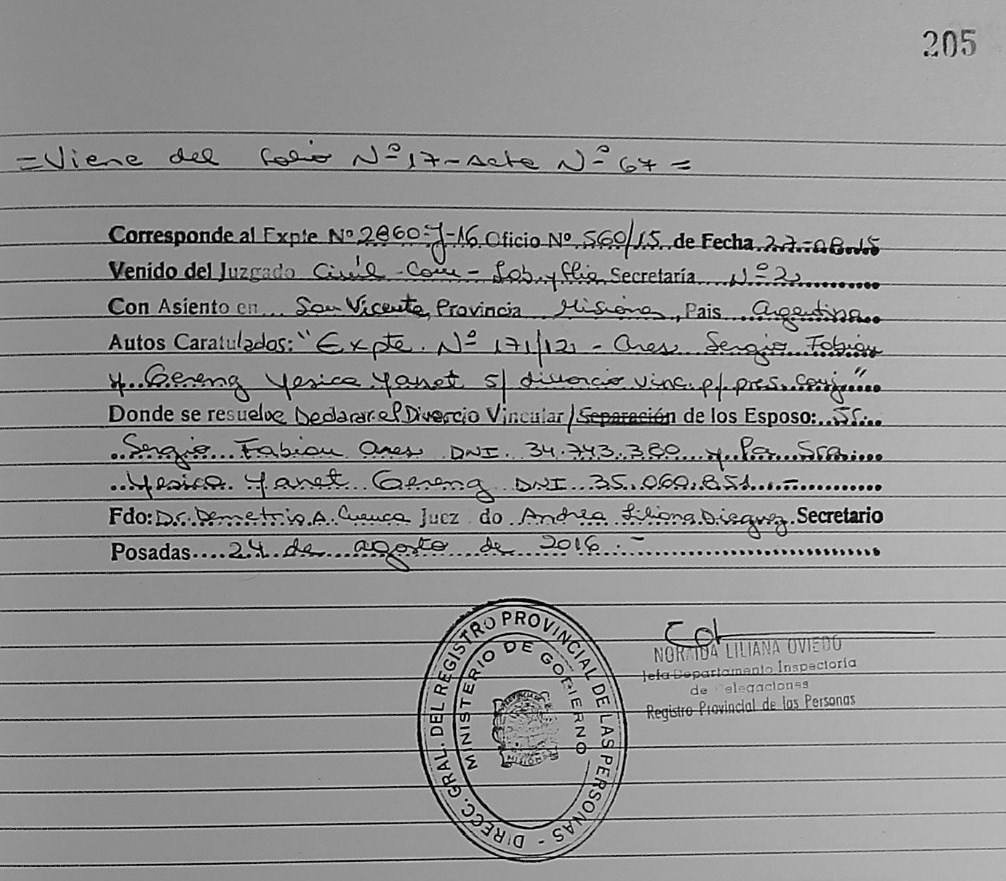 205
=Viene del folio Nº 17-Acta Nº 67=
Corresponde al Expte Nº 2860-J-16 Oficio Nº 560/15 de Fecha 27-08-15
Venido del Juzgado Civil - Com - Lab. y flia Secretaría Nº 2
Con Asiento en San Vicente, Provincia Misiones, Pais Argentina
Autos Caratulados: "Expte. Nº 171/12 - Ares Sergio Fabian
y Gereng Yesica Yanet s/ divorcio vinc. p/ pres. conj"
Donde se resuelve Declarar el Divorcio Vincular/Separación de los Esposo: Sr.
Sergio Fabian Ares DNI. 34.743.380 y la Sra.
Yesica Yanet Gereng DNI 35.060.851.-
Fdo: Dr. Demetrio A. Cuenca Juez do Andrea Liliana Dieguez Secretario
Posadas 24 de agosto de 2016.-
DIRECC. GRAL. DEL REGISTRO PROVINCIAL DE LAS PERSONAS -
MINISTERIO DE GOBIERNO
LILIANA OVIEDO
Jefa Departamento Inspectoria
de Delegaciones
Registro Provincial de las Personas